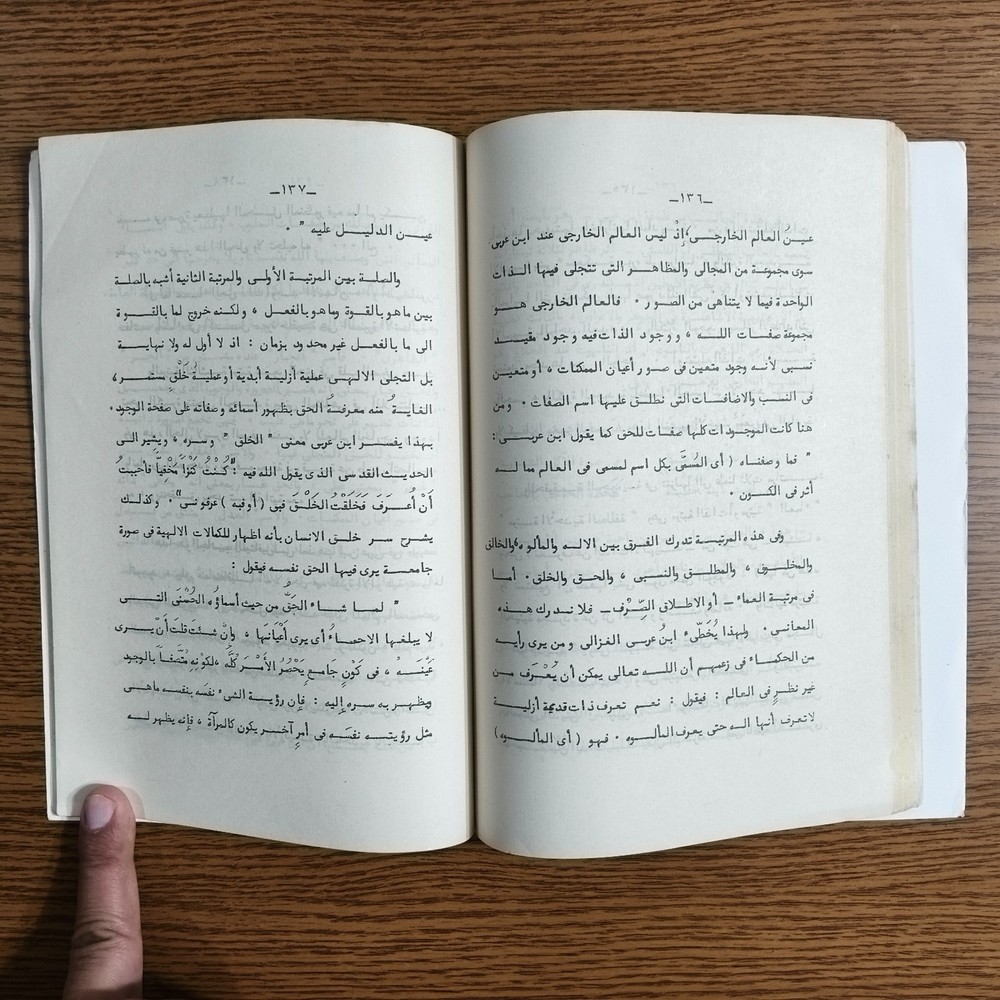 ـ١٣٦ـ
عينُ العالم الخارجى، إِذْ ليس العالم الخارجى عند ابن عربى
سوى مجموعة من المجالى والمظاهر التى تتجلى فيها الذات
الواحدة فيما لا يتناهى من الصور ٠ فالعالم الخارجى هو
مجموعة صفات الله ، ووجود الذات فيه وجود مقيد
نسبى لأنه وجود متعين فى صور أعيان الممكنات ، أو متعين
فى النسب والاضافات التى نطلق عليها اسم الصفات ٠ ومن
هنا كانت الموجودات كلها صفات للحق كما يقول ابن عربى :
" فما وصفناه ( أى المُسمَّى بكل اسم لمسمى فى العالم مما له
أثر فى الكون ٠
وفى هذه المرتبة تدرك الفرق بين الاله والمألوه ، والخالق
والمخلوق ، والمطلق والنسبى ، والحق والخلق. أما
فى مرتبة العماء ـ أو الاطلاق الصِّرْف ـ فلا ندرك هذه
المعانى ٠ ولهذا يُخَطِّىء ابنُ عربى الغزالى ومن يرى رأيه
من الحكماء فى زعمهم أن الله تعالى يمكن أن يُعْرَف من
غير نظرٍ فى العالم : فيقول : نعم تعرف ذات قديمة أزلية
لا تعرف أنها اله حتى يعرف المألوه ٠ فهو ( أى المألوه)
ـ١٣٧ـ
عين الدليل عليه " ٠
والصلة بين المرتبة الأولى والمرتبة الثانية أشبه بالصلة
بين ما هو بالقوة وما هو بالفعل ، ولكنه خروج لما بالقوة
الى ما بالفعل غير محدود بزمان : اذ لا أول له ولا نهاية
بل التجلى الالهى عملية أزلية أبدية أو عمليةُ خَلْقٍ مستمر ،
الغايةُ منه معرفةُ الحق بظهور أسمائه وصفاته على صفحة الوجود ٠
بهذا يفسر ابن عربى معنى " الخلق " وسره ، ويشير الى
الحديث القدسى الذى يقول الله فيه : "كُنْتُ كَنْزاً مَخْفِياً فأحببتُ
أَنْ أُعرَفَ فَخَلَقْتُ الخَلْقَ فبى ( أو فبه ) عرفونى" ٠ وكذلك
يشرح سر خلق الانسان بأنه اظهار للكمالات الالهية فى صورة
جامعة يرى فيها الحق نفسه فيقول :
" لما شاء الحَقُّ من حيث أسماؤه الحُسْنَى التى
لا يبلغها الاحصاءُ أى يرى أَعْيَانَها ، وانْ شئتَ قلتَ أنْ يرى
عَيْنَهُ ، فى كَوْنٍ جامعٍ يَحْصُرُ الأَمْرَ كُلَّهُ ، لكونِهِ مُتَّصِفاً بالوجود
ويظهر به سره إليه : فإن رؤية الشىء نفسَه بنفسه ماهى
مثل رؤيته نفسَه فى أمرٍ آخر يكون كالمرآة ، فإنه يظهر له